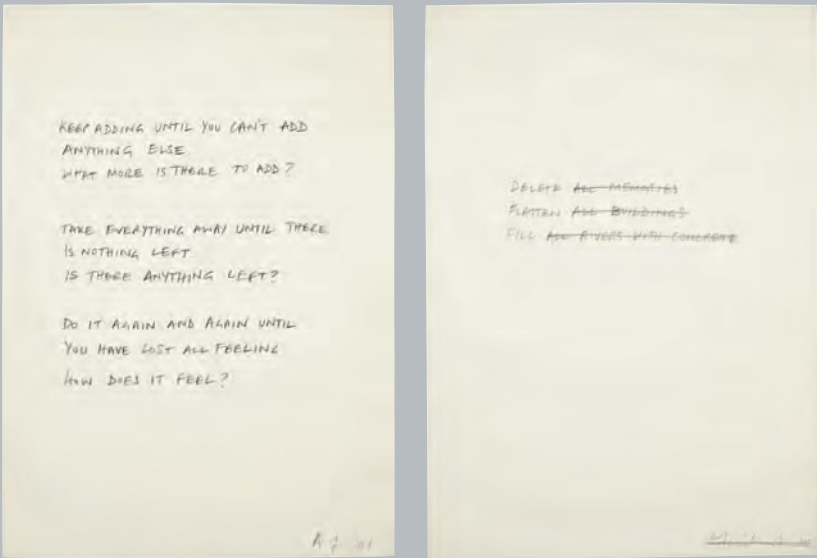 KEEP ADDING UNTIL YOU CAN'T ADD
ANYTHING ELSE
WHAT MORE IS THERE TO ADD?
TAKE EVERYTHING AWAY UNTIL THERE
IS NOTHING LEFT
IS THERE ANYTHING LEFT?
DO IT AGAIN AND AGAIN UNTIL
YOU HAVE LOST ALL FEELING
HOW DOES IT FEEL?
DELETE ALL MEMORIES
FLATTEN ALL BUILDINGS
FILL ALL RIVERS WITH CONCRETE